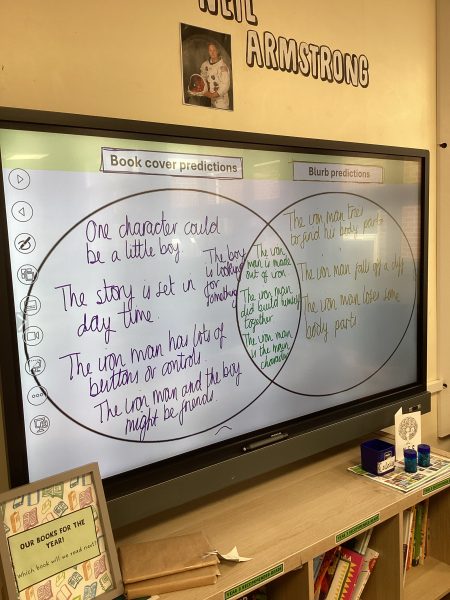 NEIL
ARMSTRONG
Book cover predictions
Blurb predictions
One character could
be a little boy
The story is set in
day time.
The iron man has lots of
buttons or controls.
The iron man and the boy
might be friends.
The boy
is looking
for
something
The iron
man is made
out of iron
The iron man
did build himself
together.
The iron man
is the main
character
The iron man tries
to find his body parts
The iron man falls off a cliff
The iron man loses some
body parts
OUR BOOKS FOR THE
YEAR!
Which book will we read next?